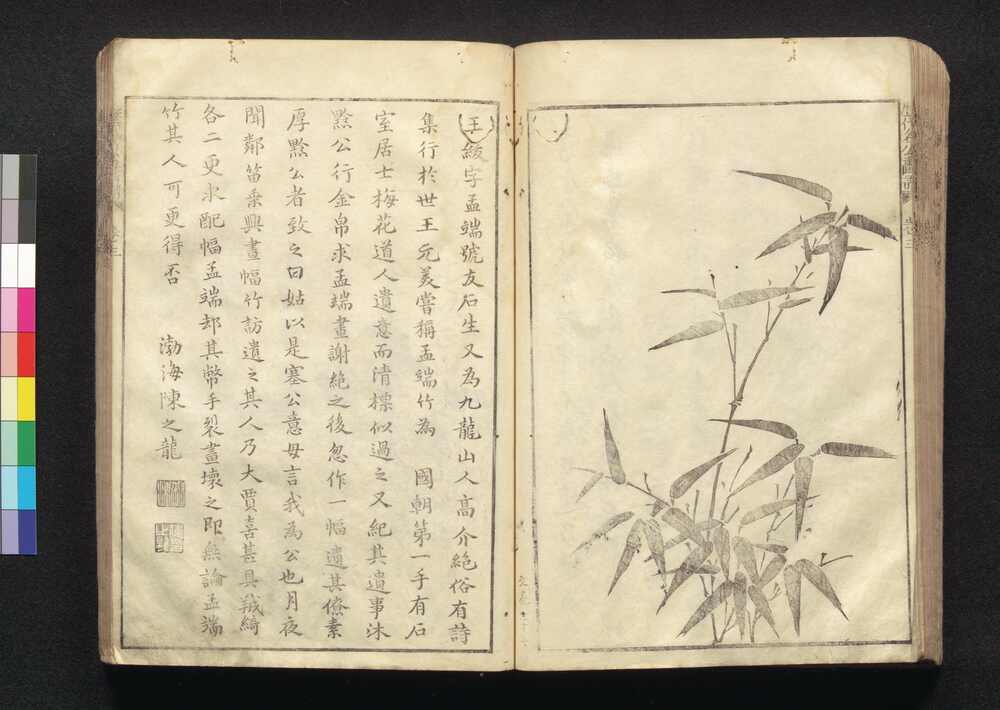 王紱字孟端號友石生又為九龍山人高介絕俗有詩
集行於世王元美嘗稱孟端竹為 國朝第一手有石
室居士梅花道人遺意而清標似過之又紀其遺事沐
黔公行金帛求孟端畫謝絕之後忽作一幅遺其僚素
厚黔公者致之曰姑以是塞公意毋言我為公也月夜
聞鄰笛乘興畫幅竹訪遺之其人乃大賈喜甚具羢綺
各二更求配幅孟端却其幣手裂畫壞之即無論孟端
竹其人可更得否
渤海陳之龍